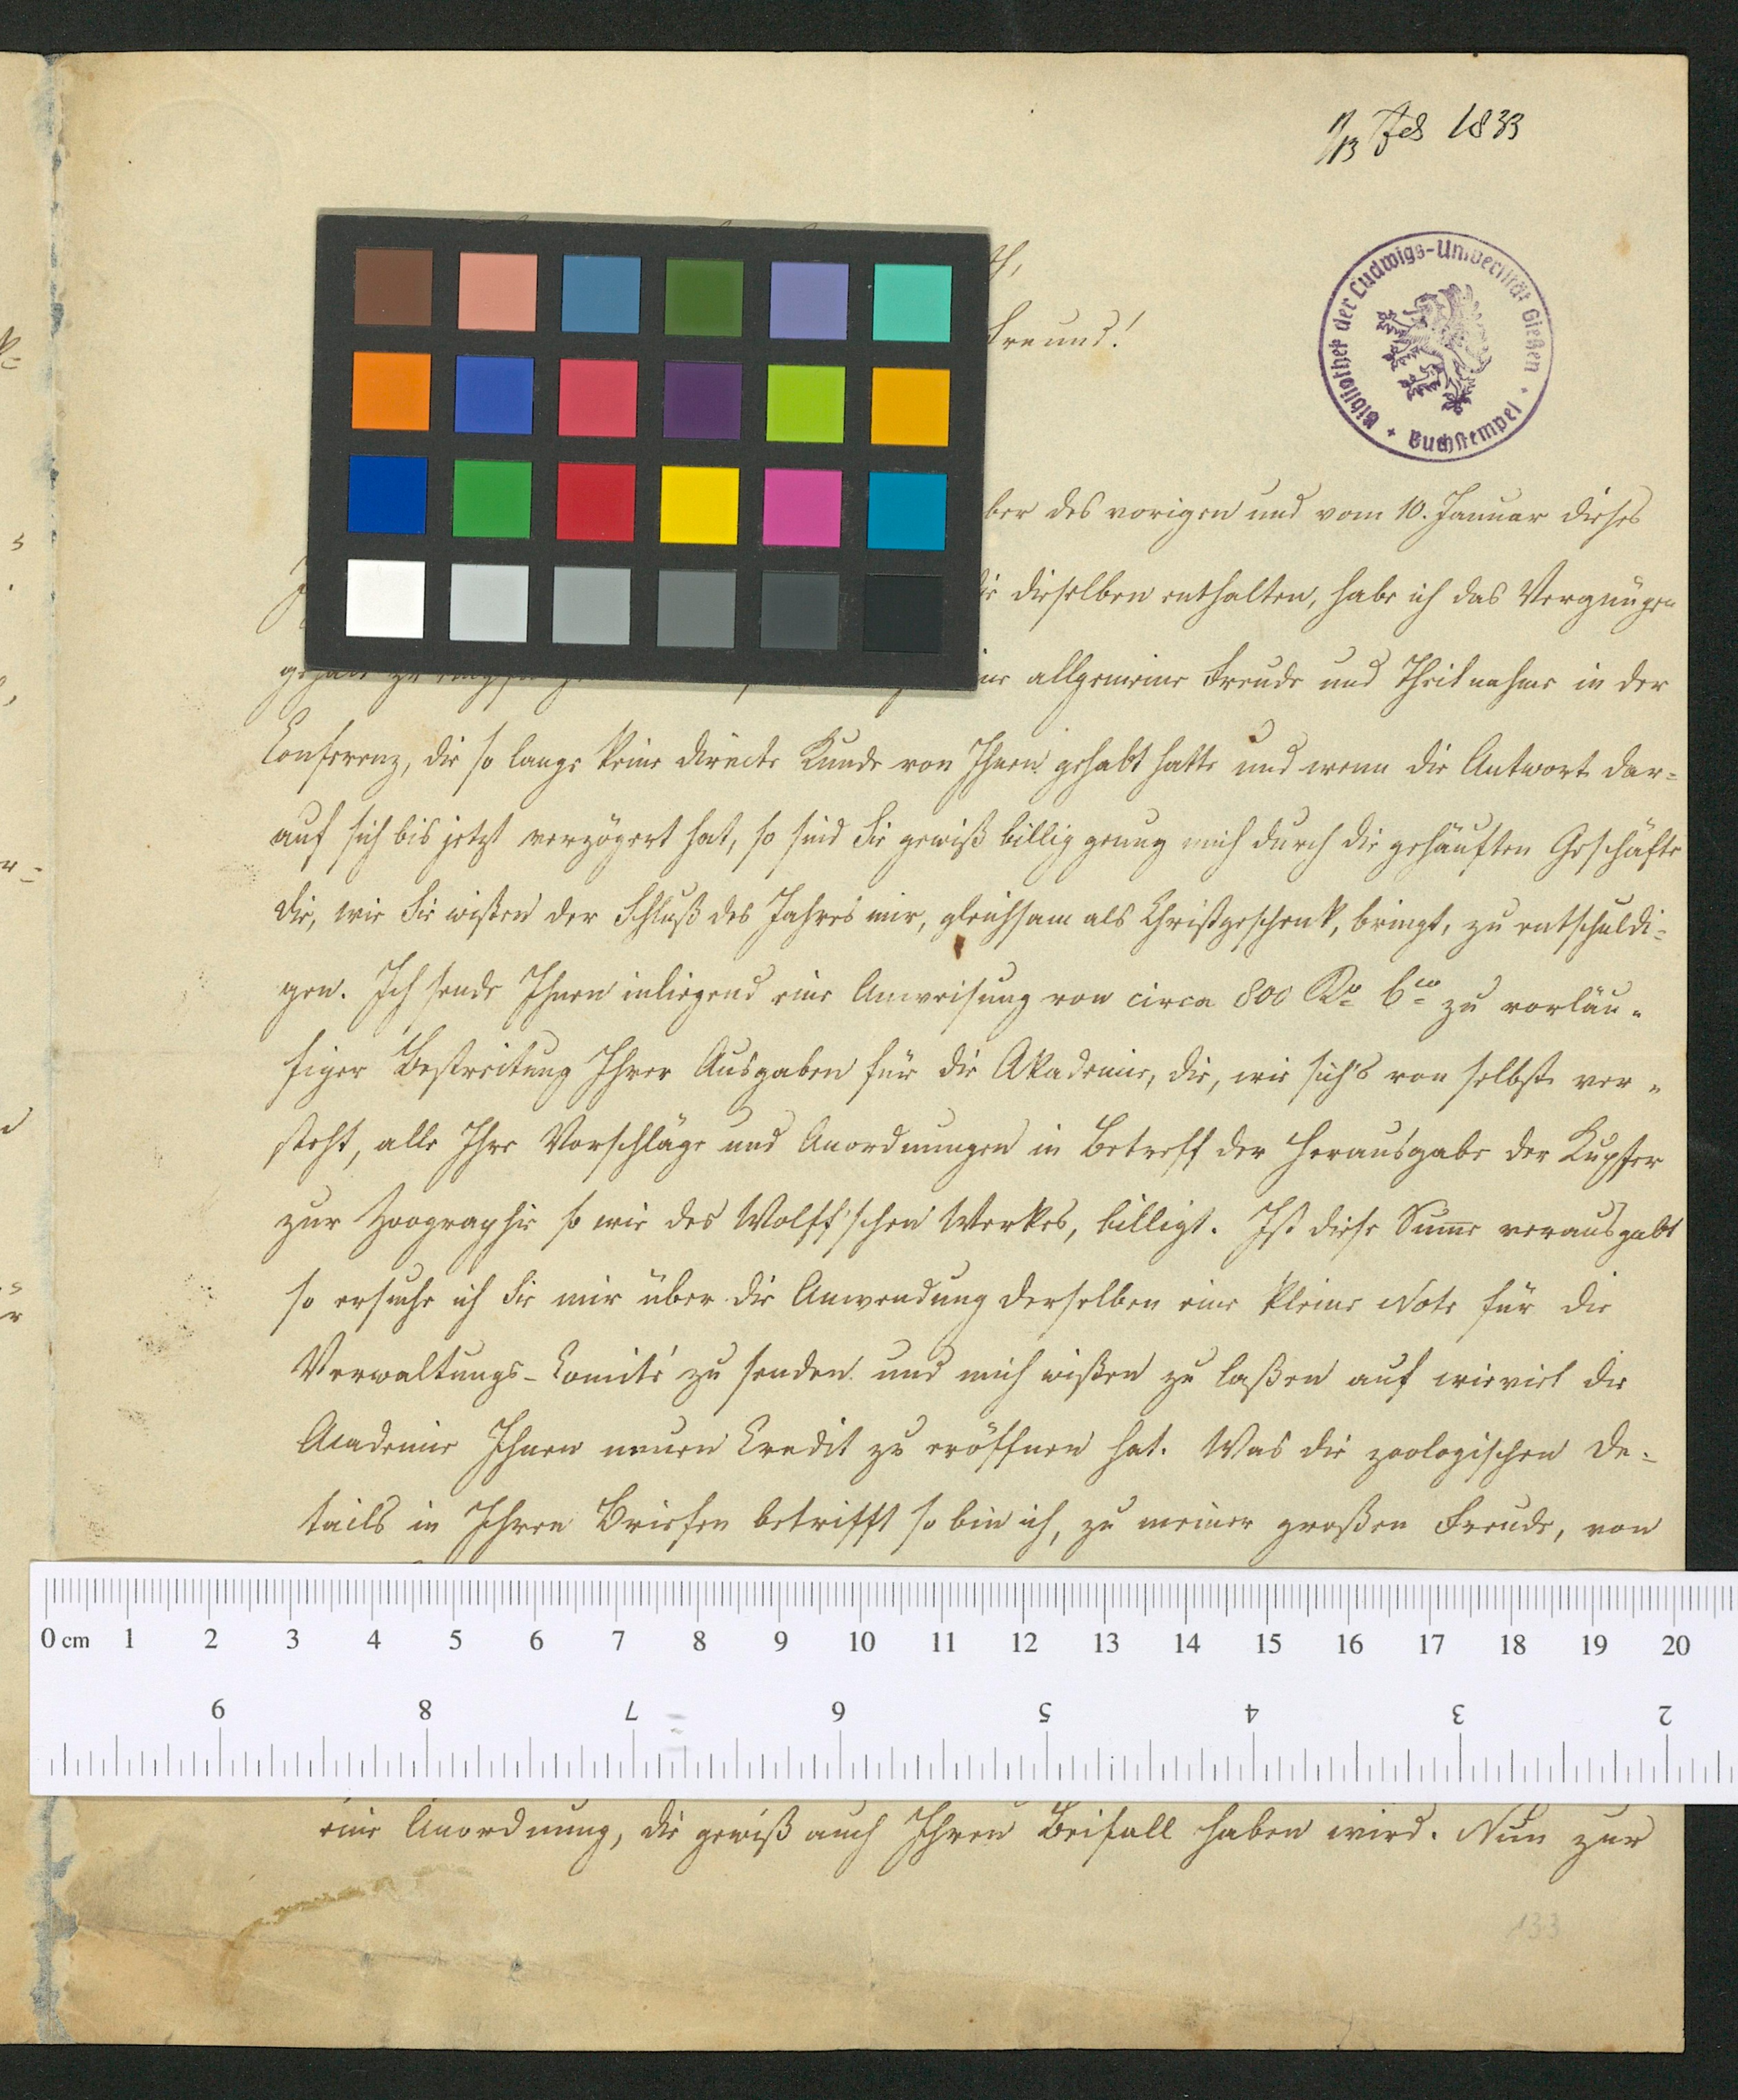 1/13 Feb 1833
Freund!
Bibliothek der Ludwigs-Universität Gießen
Buchstempel
ber des vorigen und vom 10. Januar dieses
die dieselben enthalten, habe ich das Vergnügen
ine allgemeine Freude und Theilnahme in der
Conferenz, die so lange keine directe Kunde von Ihnen gehabt hatte und wenn die Antwort dar-
auf sich bis jetzt verzögert hat, so sind Sie gewiß billig genug mich durch die gehäuften Geschäfte
die, wie Sie wißen der Schluß des Jahres mir, gleichsam als Christgeschenk, bringt, zu entschuldi-
gen. Ich sende Ihnen inliegend eine Anweisung von circa 800 Ro bco zu vorläu-
figer Bestreitung Ihrer Ausgaben für die Akademie, die, wie sich's von selbst ver-
steht, alle Ihre Vorschläge und Anordnungen in Betreff der Herausgabe der Kupfer
zur Zoographie so wie des Wolff'schen Werkes, billigt. Ist diese Sume verausgabt
so ersuche ich Sie mir über die Anwendung derselben eine kleine Note für die
Verwaltungs-Comité zu senden und mich wißen zu laßen auf wieviel die
Academie Ihnen neuen Credit zu eröffnen hat. Was die zoologischen De-
tails in Ihren Briefen betrifft so bin ich, zu meiner großen Freude, von
0 cm 1 2 3 4 5 6 7 8 9 10 11 12 13 14 15 16 17 18 19 20
9 8 7 6 5 4 3 2
eine Anordnung, die gewiß auch Ihren Beifall haben wird. Nun zur
133